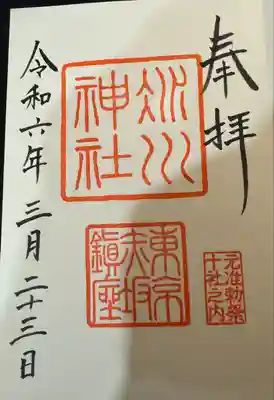 奉拝
氷川
神社
東京
赤坂
鎮座
元准勅祭
十社之内
令和六年三月二十三日